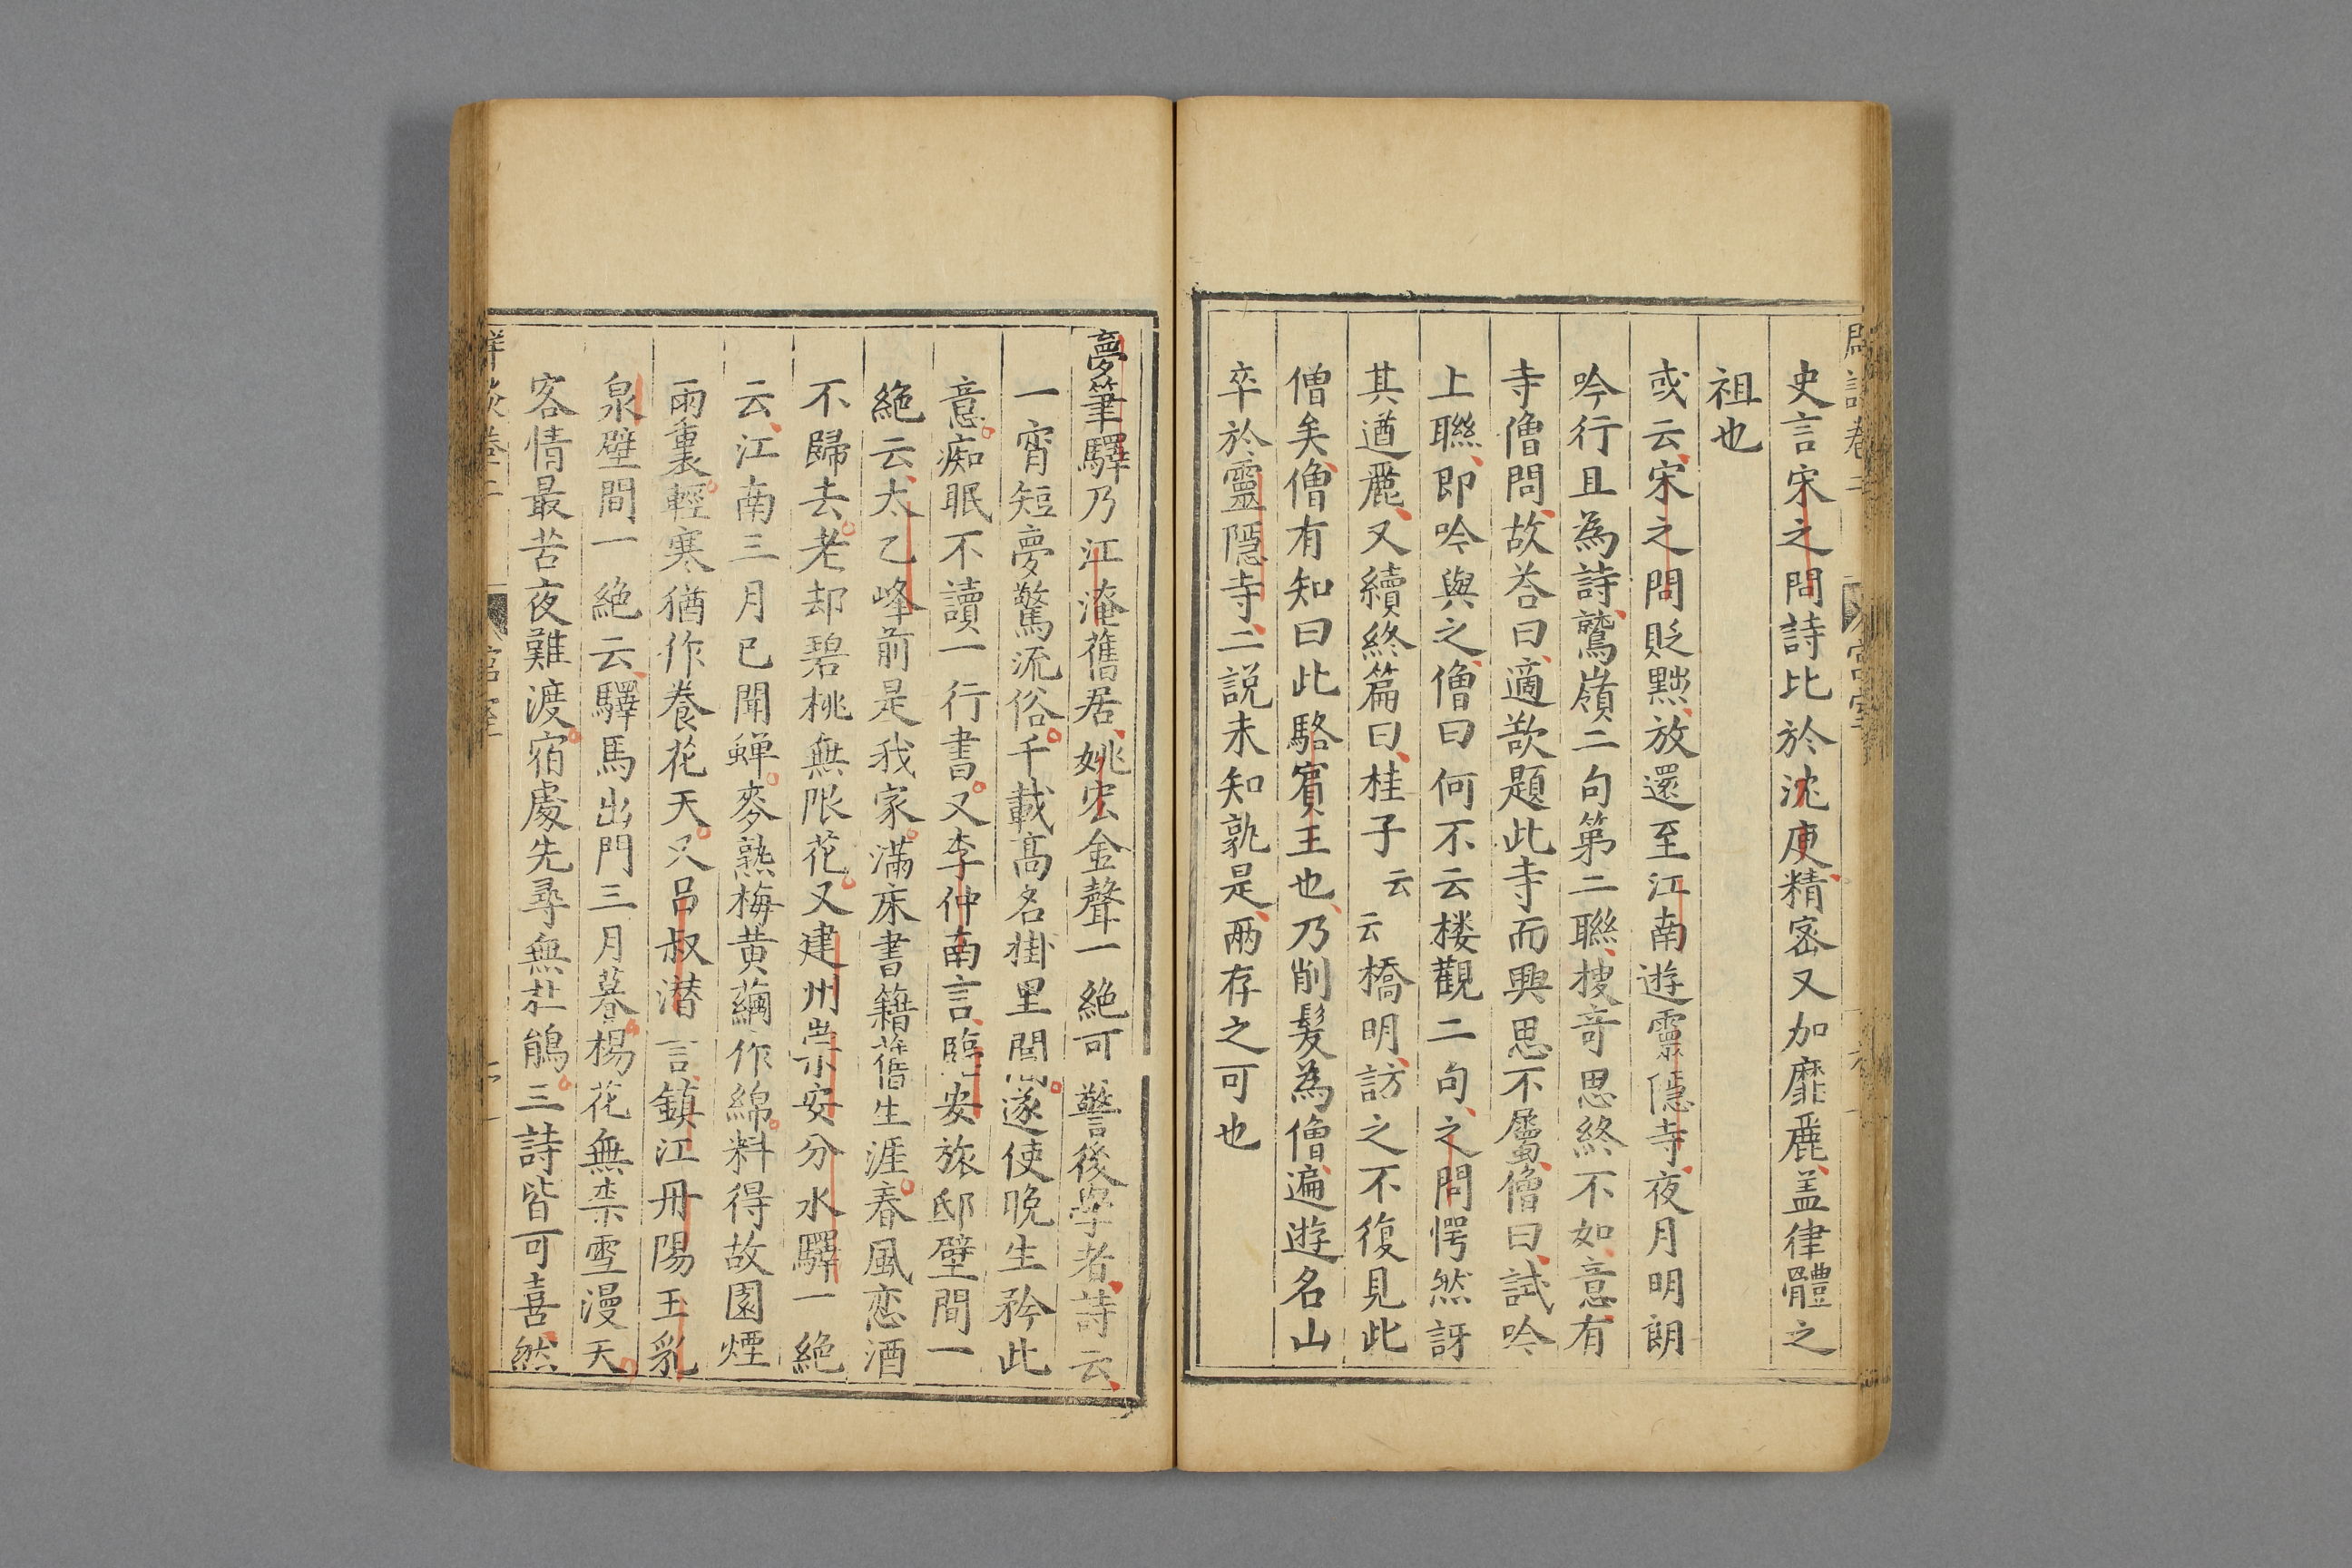 史言宋之問詩比於沈庾精密又加靡麗盖律體之
祖也
或云宋之問貶黜放還至江南遊靈隱寺夜月明朗
吟行且為詩鷲嶺二句第二聯搜竒思終不如意有
寺僧問故荅曰適欲題此寺而興思不屬僧曰試吟
上聯即吟與之僧曰何不云楼觀二句之問愕然訝
其遒麗又續終篇曰桂子云云橋明訪之不復見此
僧矣僧有知曰此駱賓王也乃削髮為僧遍遊名山
卒於靈隱寺二説未知孰是兩存之可也
夢筆驛乃江淹舊居姚宏金聲一絶可警後學者詩云
一宵短夢驚流俗千載髙名掛里閭遂使晚生矜此
意痴眠不讀一行書又李仲南言臨安旅邸壁間一
絶云太乙峰前是我家滿床書籍舊生涯春風恋酒
不歸去老却碧桃無限花又建州崇安分水驛一絶
云江南三月已聞蟬麥熟梅黄繭作綿料得故園煙
雨裏輕寒猶作養花天又吕叔潜言鎮江丹陽玉乳
泉壁間一絶云驛馬出門三月暮楊花無柰雪漫天
客情最苦夜難渡宿處先尋無杜鵑三詩皆可喜然